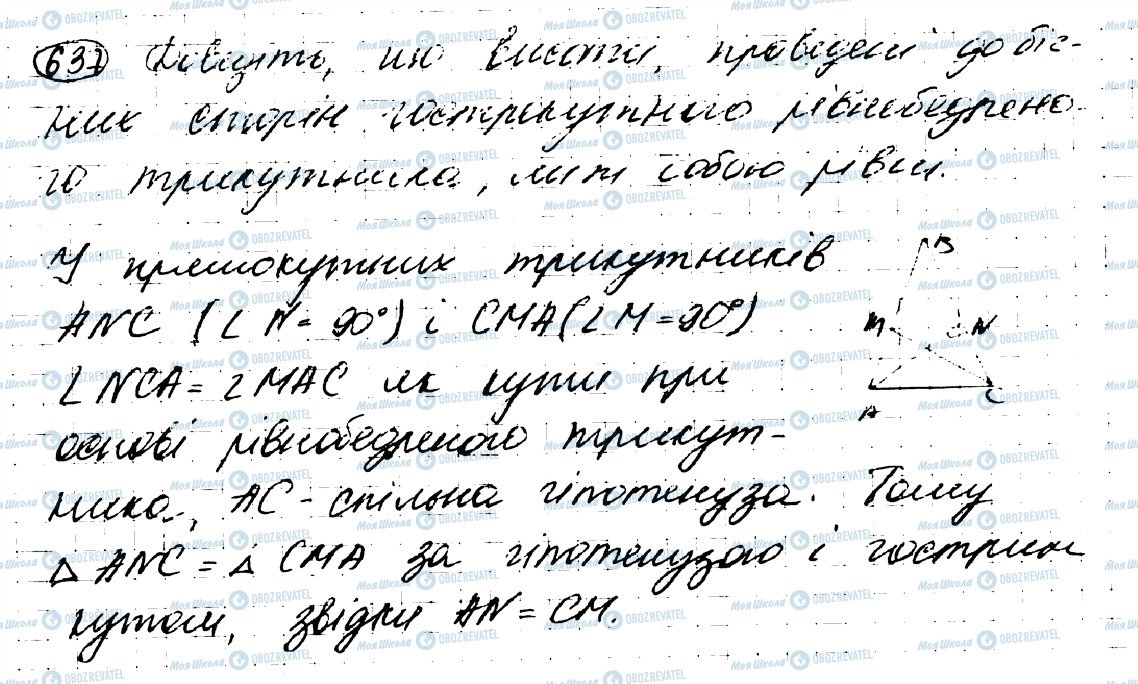 637 Доведіть, що висоти, проведені до біч-
них сторін гострокутного рівнобедрено-
го трикутника, між собою рівні.
У прямокутних трикутників
ANC (∠ N = 90°) і CMA (∠ M = 90°)
∠ NCA = ∠ MAC як кути при
основі рівнобедреного трикут-
ника, AC - спільна гіпотенуза. Тому
△ ANC = △ CMA за гіпотенузою і гострим
кутом, звідки AN = CM.
B
M N
A C